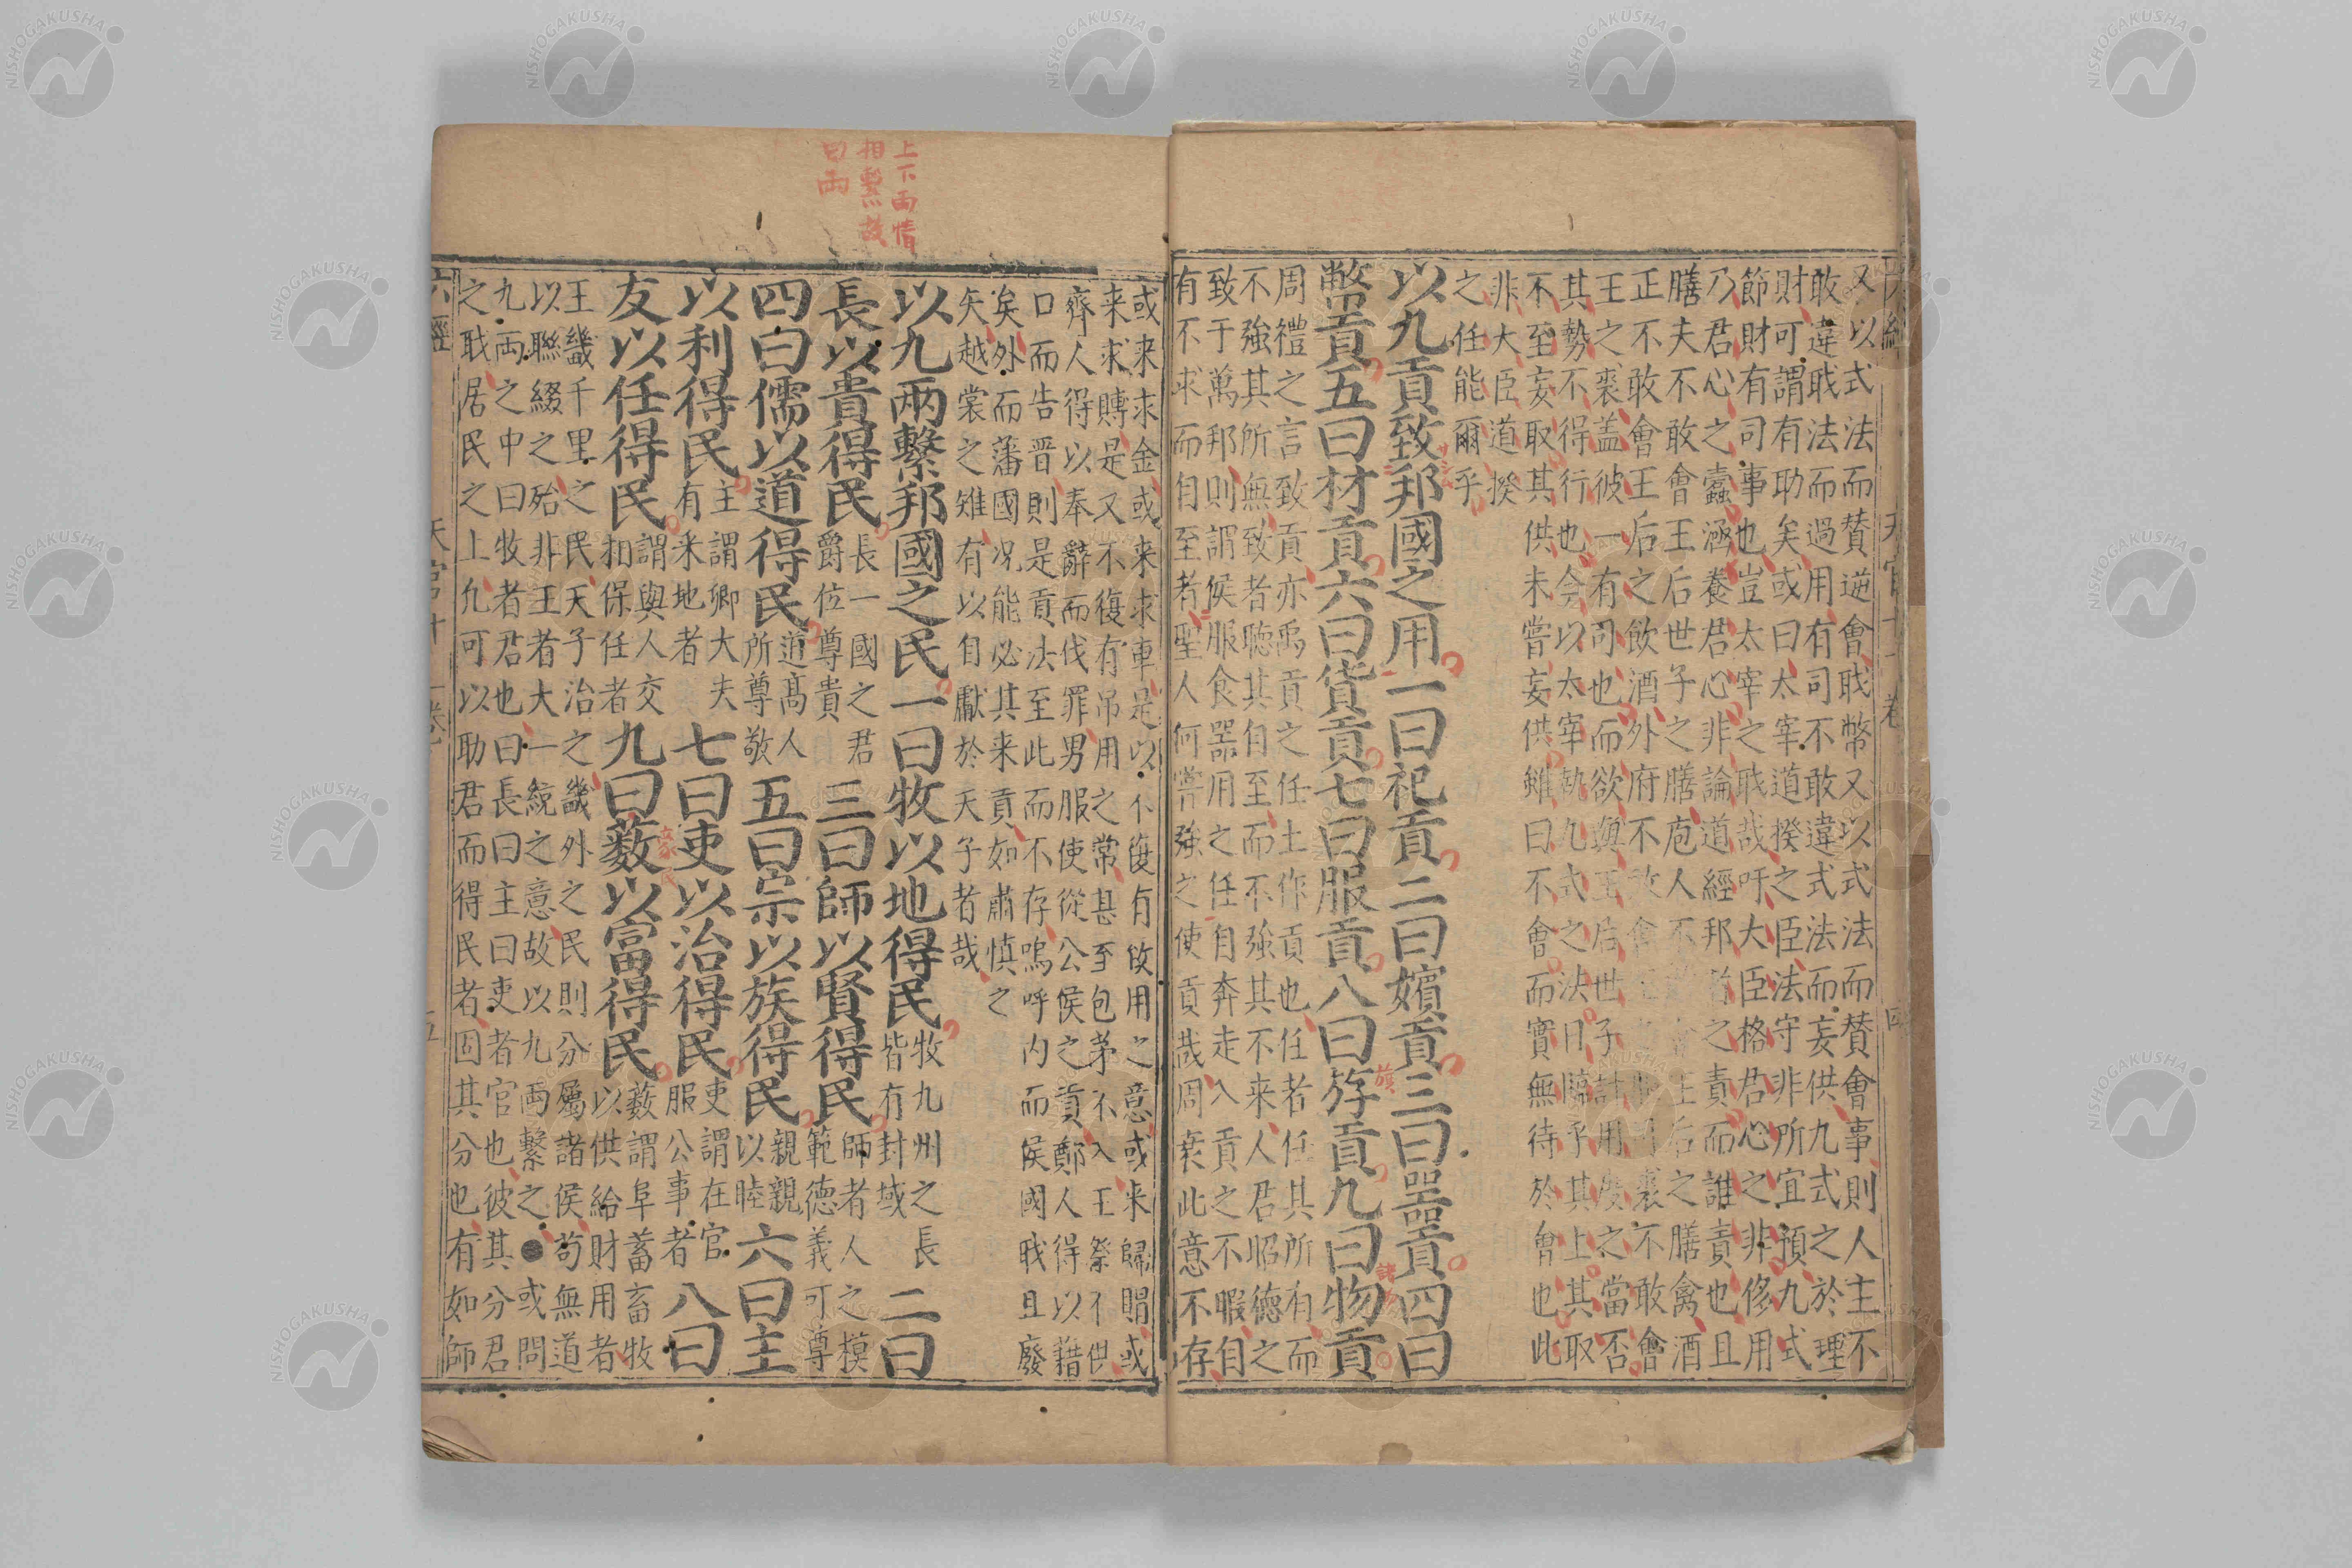 又以式法而賛逆會戢幣又以式法而賛會事則人主不
敢違戢法而過用有司不敢違式法而妄供九式之於理
財可謂有助矣或曰太宰道揆之臣法守非所宜預九式
節財有司事也豈太宰之戢哉吁大臣格君心之非修用
乃君心之蠧涵養君心非論道經邦者之責而誰責也且
膳夫不敢會王后世子之膳庖人不會王后之膳禽酒
正不敢會王后之飲酒外府不敢會裘不敢會
王之裘盖彼一有司也而欲與王后世子計用度之當否
其勢不得行也今以太宰執九式之法日臨乎其上其取
不至妄取其供未嘗妄供雖曰不會而實無待於會也此
非大臣道揆
之任能爾乎
以九貢致邦國之用一曰祀貢二曰嬪貢三曰噐貢四曰
幣貢五曰材貢六曰貨貢七曰服貢八曰斿貢九曰物貢
周禮之言致貢亦禹貢之任土作貢也任者任其所有而
不強其所無致者聴其自至而不強其不来人君昭德之
致于萬邦則謂侯服食噐用之任自奔走入貢之不暇自
有不求而自至者聖人何嘗強之使貢哉周衰此意不存
或来求金或来求車是以不復有攸用之意或来歸賵或
来求賻是又不復有吊用之常甚至包茅不入王祭不供
齊人得以奉辭而伐罪男服使從公侯之貢鄭人得以藉
口而告晋則是貢法至此而不存嗚呼内而侯國戢且廢
矣外而藩國况能必其来貢如肅慎之
矢越裳之雉有以自獻於天子者哉
以九兩繫邦國之民一曰牧以地得民牧九州之長皆有封域二曰
長以貴得民長一國之君爵位尊貴三曰師以賢得民師者人之模範德義可尊
四曰儒以道得民道髙人所尊敬五曰宗以族得民親親以睦六曰主
以利得民主謂卿大夫有采地者七曰吏以治得民吏謂在官服公事者八曰
友以任得民謂與人交相保任者九曰藪以富得民藪謂阜蓄畜牧以供給財用者
王畿千里之民天子治之畿外之民則分屬諸侯苟無道
以聯綴之殆非王者大一統之意故以九兩繫之●或問
九兩之中曰牧者君也曰長曰主曰吏者官也彼其分君
之戢居民之上九可以助君而得民者固其分也有如師
上下兩情
相繫故
曰兩
六經 天官
NISHOGAKUSHA